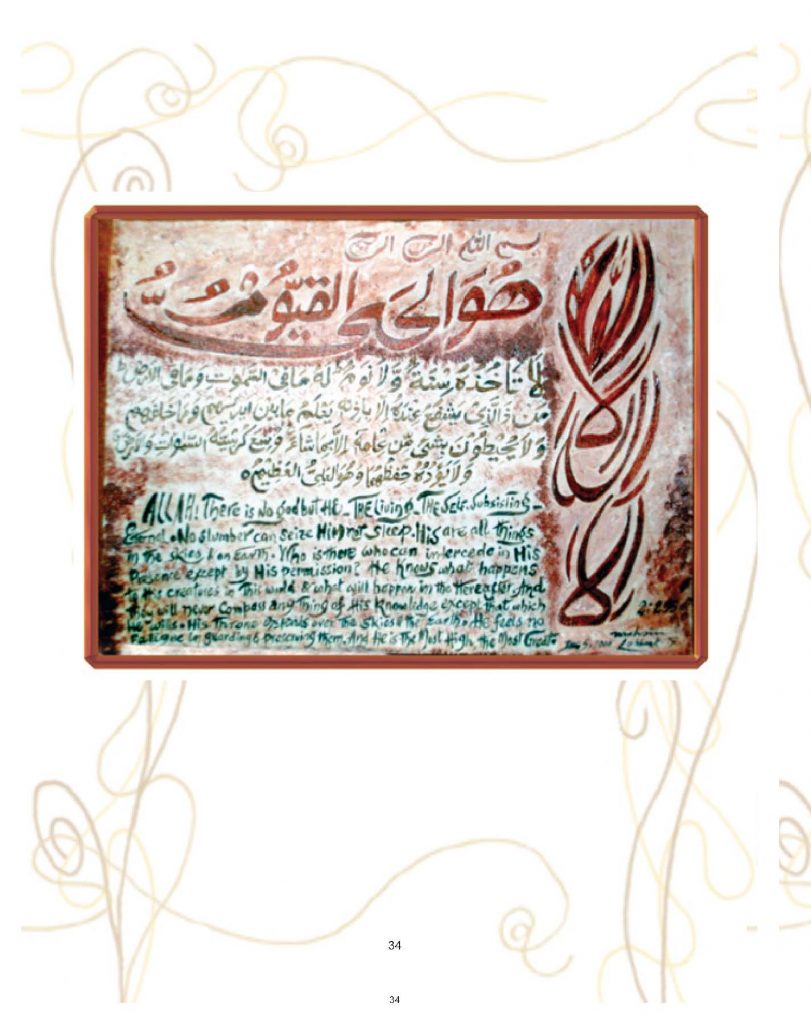 بسم الله الرحمن الرحيم
هُوَ الحَىُّ القَيُّومُ
لَا تَاخُذُهُ سِنَةٌ وَّلَا نَومٌ لَهُ مَا فِى السَّمٰوٰتِ وَمَا فِى الْاَرْضِ
مَن ذَا الَّذِى يشفَعُ عِندَهُ اِلا باِذنِهٖ يَعلَمُ مَا بَينَ اَيديهِم وَمَا خَلفَهُم
وَلَا يُحِيطُونَ بِشَىءٍ مِّن عِلمِهٖ اِلَّا بِمَا شَاءَ وَسِعَ كُرسِيُّهُ السَّمٰوٰتِ وَالاَرضَ
وَلَا يَؤُدُهُ حِفظُهُمَا وَهُوَ العَلِىُّ العَظِيمُ
ALLAH! There is No god but HE - THE Living - THE Self-Subsisting -
Eternal. No slumber can seize Him nor sleep. His are all things
in the skies & on earth. Who is there who can intercede in His
Presence except by His permission? He Knows what happens
to His creatures in This world & what will happen in the Hereafter. And
they will never Compass any Thing of His Knowledge except that which
He wills. His Throne extends over the Skies & the Earth. He feels no
Fatigue in guarding & preserving them. And He is The Most High, the Most Great
الله لا اله الا
2:255
34
34